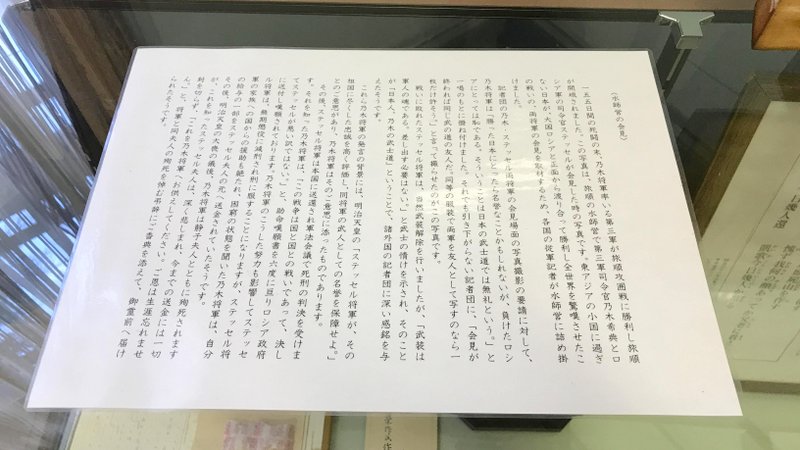 《水師営の会見》
一五五日間の死闘の末、乃木将軍率いる第三軍が旅順攻囲戦に勝利し旅順
が開城されました。この写真は、旅順の水師営で第三軍司令官乃木希典とロ
シア軍の司令官ステッセルが会見した時の写真です。東アジアの小国に過ぎ
ない日本が、大国ロシアと正面から渡り合って勝利し全世界を驚嘆させたこ
の戦いの、両将軍の会見を取材するため、各国の従軍記者が水師営に詰め掛
けました。
記者団の乃木・ステッセル両将軍の会見場面の写真撮影の要請に対して、
乃木将軍は、「勝った日本にとったら名誉なことかもしれないが、負けたロシ
アにとっては恥である。そういうことは日本の武士道では無礼という。」と
一喝のもとに撥ね付けました。それでも引き下がらない記者団に、「会見が
終われば同じ武の道の友人だ。同等の服装で両軍を友人として写すのなら一
枚だけ許そう」と言って撮らせたのがこの写真です。
戦いに敗れたステッセル将軍は、当然武装解除を行いましたが、「武装は
軍人の魂である。差し出す必要はない。」と武士の情けを示され、そのこと
が「日本人、乃木の武士道」ということで、諸外国の記者団に深い感銘を与
えたそうです。
これら乃木将軍の発言の背景には、明治天皇の「ステッセル将軍が、その
祖国に尽くした忠誠を高く評価し、同将軍の武人としての名誉を保障せよ。」
とのご意思があり、乃木将軍はそのご意思に添ったものであります。
その後、ステッセル将軍は本国に送還され軍法会議で死刑の判決を受けま
す。それを知った乃木将軍は、「この戦争は国と国との戦いであって、決し
てステッセルが悪い訳ではない。」と、助命嘆願書を六度に亘りロシア政府
に送付し嘆願されております。乃木将軍のこうした努力も影響してステッセ
ル将軍は、無期懲役に減刑され刑に服することになりますが、ステッセル将
軍の家族への国からの援助も絶たれ、困窮の状態を聞いた乃木将軍は、自分
の給与の一部をステッセル夫人の元へ送金されていたそうです。
その後、明治天皇の大喪の最後、乃木将軍は静子夫人とともに殉死されます
が、これを知ったステッセル夫人は、深く悲しまれ、今までの送金には一切
封を切らず、「これを乃木将軍へお供えしてください。ご恩は生涯忘れませ
ん。」と、将軍と同夫人の殉死を悼む弔辞にご香典を添えて、御霊前へ届け
られたそうです。